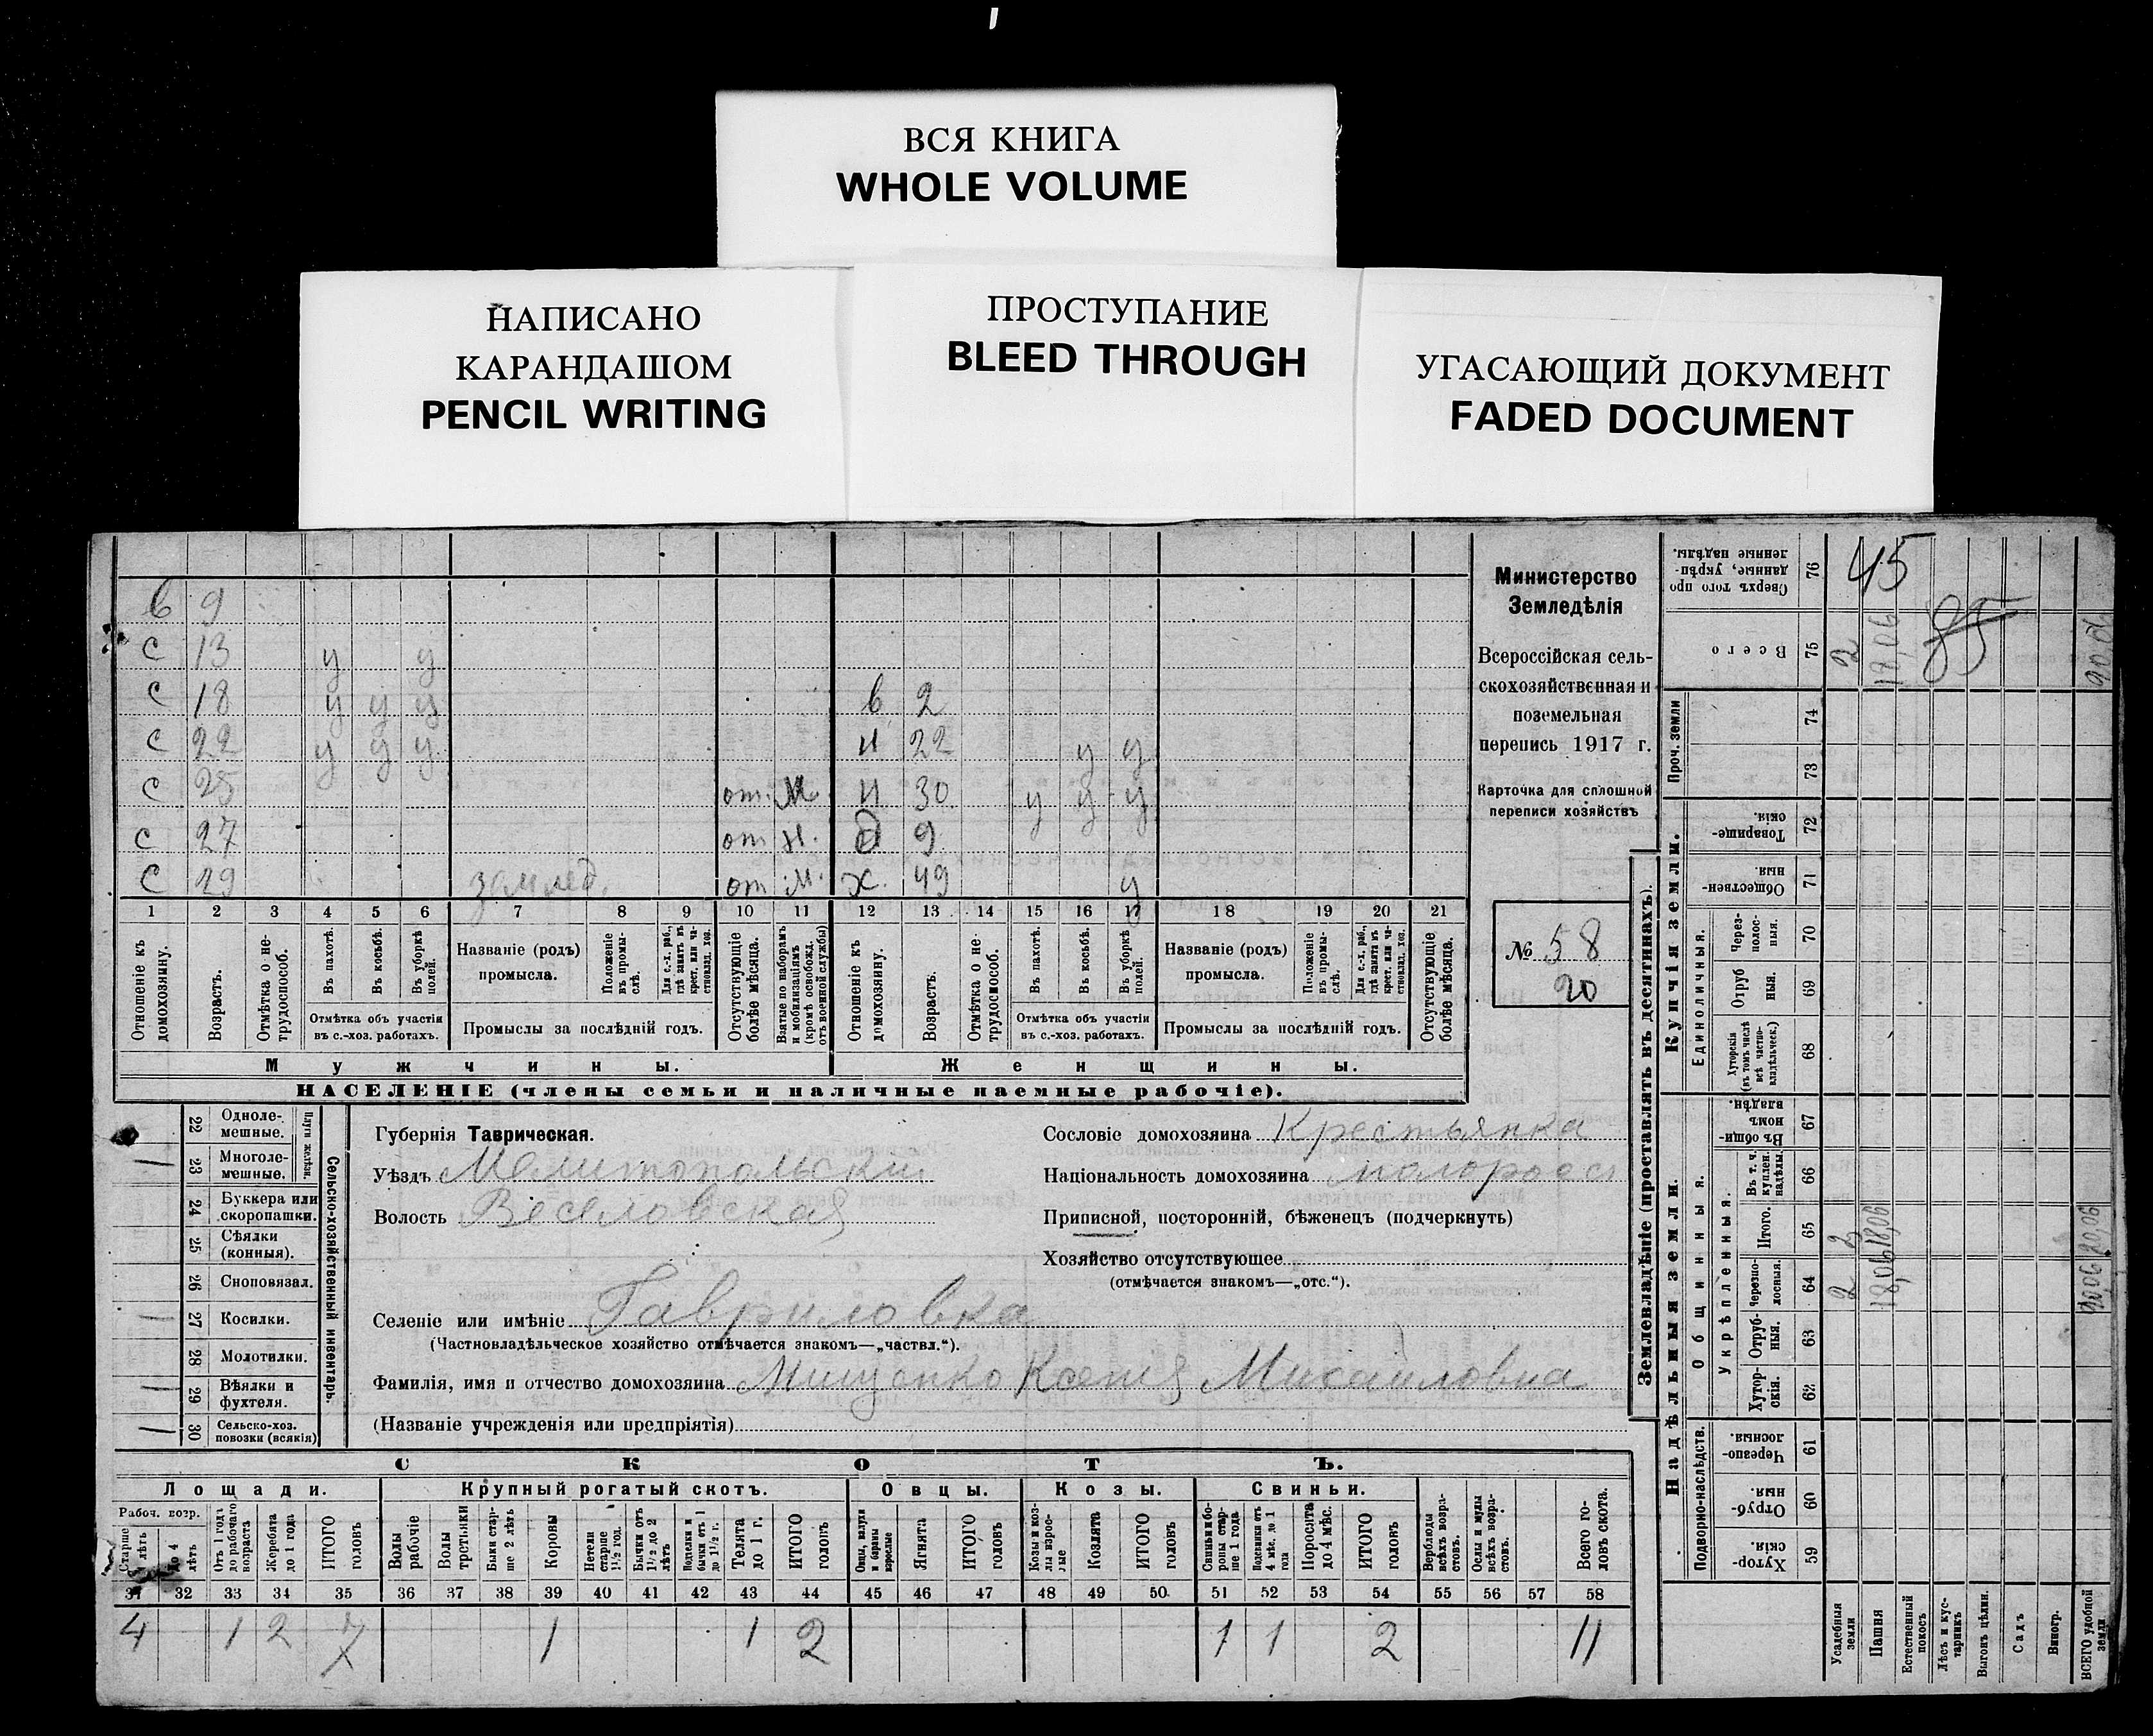 ВСЯ КНИГА
WHOLE VOLUME
НАПИСАНО
КАРАНДАШОМ
PENCIL WRITING
ПРОСТУПАНИЕ
BLEED THROUGH
УГАСАЮЩИЙ ДОКУМЕНТ
FADED DOCUMENT
в 9
с 13 у у
с 18 у у у в 2
с 22 у у у н 22 у у
с 25 от. м. н 30 у у у
с 27 от н. д 9
с 29 от м. ж. 49 у
1 2 3 4 5 6 7 8 9 10 11 12 13 14 15 16 17 18 19 20 21
Отношеніе къ домохозяину.
Возрастъ.
Отмѣтка о нетрудоспособ.
Въ пахотѣ.
Въ косьбѣ.
Въ уборкѣ полей.
Отмѣтка объ участіи въ с.-хоз. работахъ.
Названіе (родъ) промысла.
Положеніе въ промыслѣ.
Для с.-х. раб., гдѣ занятъ въ крест. или частновлад. хоз.
Промыслы за послѣдній годъ.
Отсутствующіе болѣе мѣсяца.
Взятые по наборамъ и мобилизаціямъ (кромѣ освобожд. отъ военной службы)
Отношеніе къ домохозяину.
Возрастъ.
Отмѣтка о нетрудоспособ.
Въ пахотѣ.
Въ косьбѣ.
Въ уборкѣ полей.
Отмѣтка объ участіи въ с.-хоз. работахъ.
Названіе (родъ) промысла.
Положеніе въ промыслѣ.
Для с.-х. раб., гдѣ занята въ крест. или частновлад. хоз.
Промыслы за послѣдній годъ.
Отсутствующіе болѣе мѣсяца.
Мужчины.
Женщины.
НАСЕЛЕНІЕ (члены семьи и наличные наемные рабочіе).
Министерство
Земледѣлія
Всероссійская сель-
скохозяйственная и
поземельная
перепись 1917 г.
Карточка для сплошной
переписи хозяйствъ
№ 58
20
22 Одноле-мешные.
23 Многоле-мешные.
Плуги желѣзн.
24 Буккера или скоропашки.
25 Сѣялки (конныя).
26 Сноповязал.
27 Косилки.
28 Молотилки.
29 Вѣялки и фухтеля.
30 Сельско-хоз. повозки (всякія)
Сельско-хозяйственный инвентарь.
Губернія Таврическая.
Уѣздъ Мелитопольский
Волость Веселовская
Селеніе или имѣніе Гавриловка
(Частновладѣльческое хозяйство отмѣчается знакомъ—„частвл.“).
Фамилія, имя и отчество домохозяина Мищенко Ксения Михайловна
(Названіе учрежденія или предпріятія)
Сословіе домохозяина Крестьянка
Національность домохозяина малоросс
Приписной, посторонній, бѣженецъ (подчеркнуть)
Хозяйство отсутствующее
(отмѣчается знакомъ—„отс.“).
СКОТЪ.
Лошади.
Крупный рогатый скотъ.
Овцы.
Козы.
Свиньи.
Рабоч. возр.
До 4 лѣтъ
Отъ 1 года до рабочаго возраста
Жеребята до 1 года
ИТОГО головъ
Волы рабочіе
Волы третьяки
Быки старше 2 лѣтъ
Коровы
Нетели старше 1½ год.
Бычки отъ 1½ до 2 лѣтъ
Подтелки и бычки отъ 1 до 1½ г.
Телята до 1 г.
ИТОГО головъ
Овцы, валухи и бараны взрослые
Ягнята
ИТОГО головъ
Козы и козлы взрослые
Козлята
ИТОГО головъ
Свиньи и боровы старше 1 года
Подсвинки отъ 4 мѣс. до 1 года
Поросята до 4 мѣс.
ИТОГО головъ
Верблюды всѣхъ возрастовъ.
Ослы и мулы всѣхъ возрастовъ.
Всего головъ скота.
31 32 33 34 35 36 37 38 39 40 41 42 43 44 45 46 47 48 49 50 51 52 53 54 55 56 57 58
4 1 2 7 1 1 2 1 1 2 11
Землевладѣніе (проставлять въ десятинахъ).
Надѣльныя земли.
Купчія земли.
Проч. земли
Подворно-наслѣдств.
Общинныя.
Укрѣпленныя.
Единоличныя.
76 Сверхъ того проданные, укрѣпленные надѣлы.
45
75 Всего 2 18,06 85 20,06
74
73
72 Товарищескія.
71 Общественныя
70 Черезполосныя.
69 Отрубныя.
68 Хуторскія (въ томъ числѣ всѣ частновладѣльческ.)
67 Въ общинномъ владѣн.
66 Въ т. ч. куплен. надѣлы.
65 Итого. 2 18,06 20,06
64 Черезполосныя. 2 18,06 20,06
63 Отрубныя.
62 Хуторскія.
61 Черезполосныя.
60 Отрубныя.
59 Хуторскія.
Усадебныя земли
Пашня
Естественный покосъ
Лѣсъ и кустарникъ
Выгонъ цѣлин.
Садъ
Виногр.
ВСЕГО удобной земли